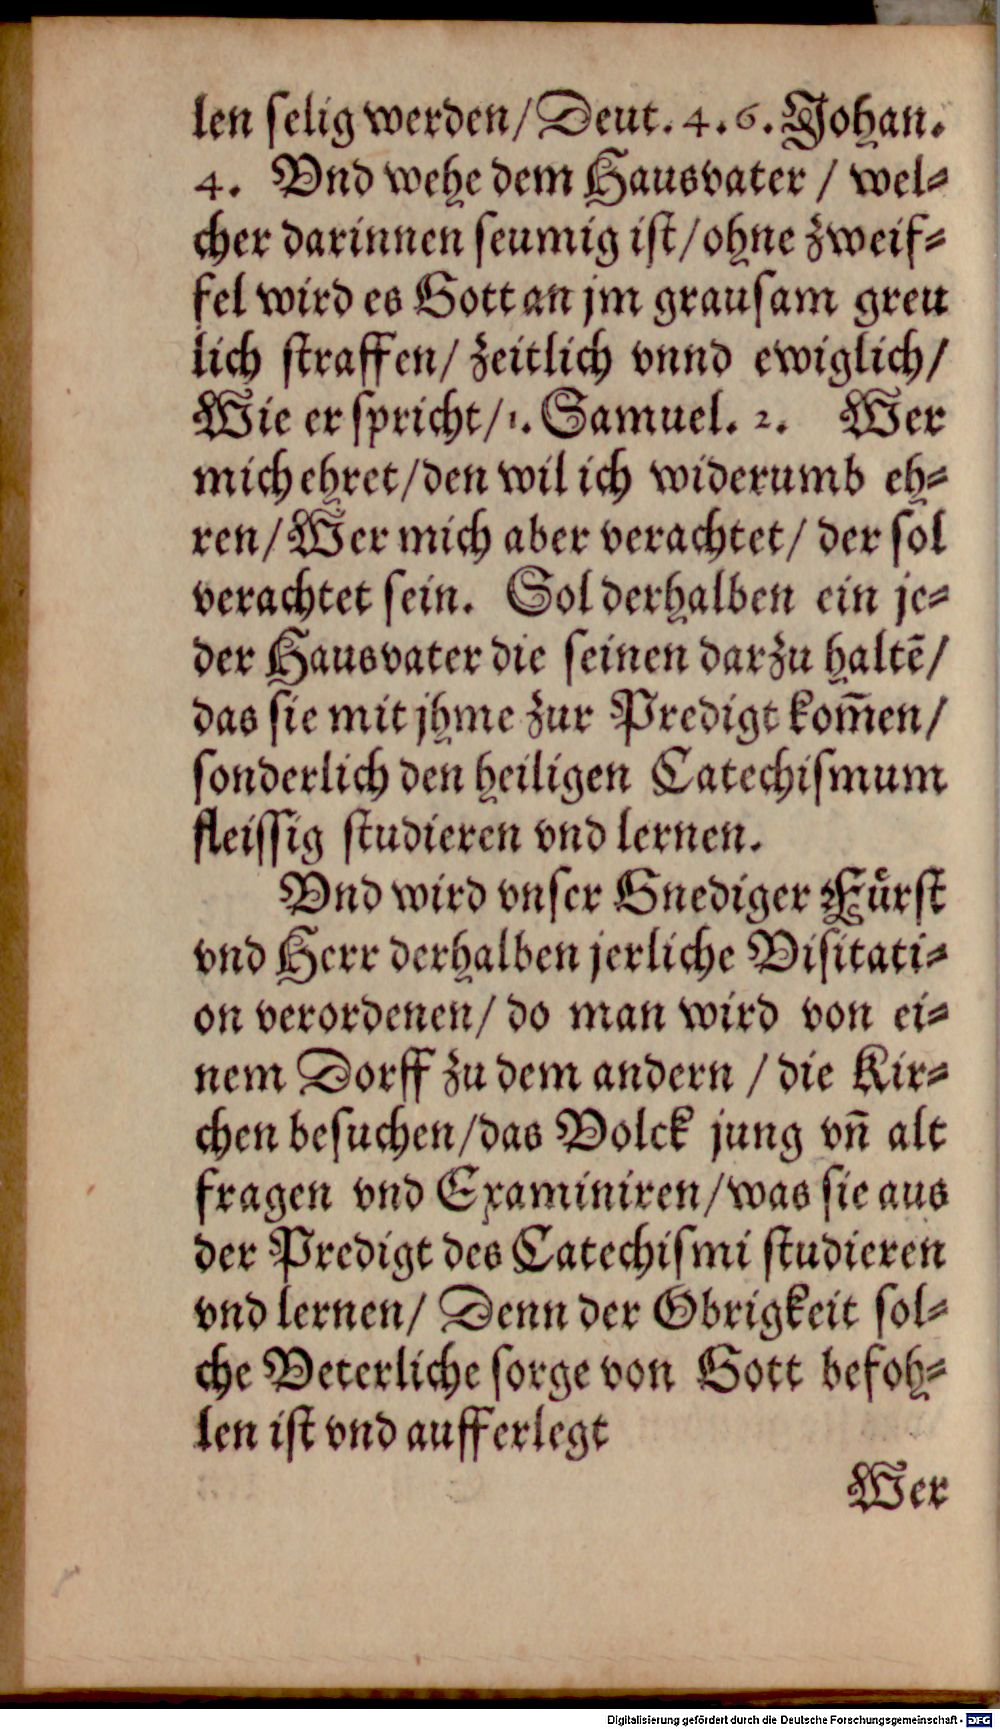 len selig werden/ Deut. 4. 6. Johan.
4. Vnd wehe dem Hausvater / wel-
cher darinnen seumig ist/ ohne zweif-
fel wird es Gott an jm grausam greu
lich straffen/ zeitlich vnnd ewiglich/
Wie er spricht/ 1. Samuel. 2. Wer
mich ehret/ den wil ich widerumb eh-
ren/ Wer mich aber verachtet/ der sol
verachtet sein. Sol derhalben ein je-
der Hausvater die seinen darzu haltē/
das sie mit jhme zur Predigt kom̄en/
sonderlich den heiligen Catechismum
fleissig studieren vnd lernen.
Vnd wird vnser Gnediger Fuͤrst
vnd Herr derhalben jerliche Visitati-
on verordenen/ do man wird von ei-
nem Dorff zu dem andern / die Kir-
chen besuchen/ das Volck jung vn̄ alt
fragen vnd Examiniren/ was sie aus
der Predigt des Catechismi studieren
vnd lernen/ Denn der Obrigkeit sol-
che Veterliche sorge von Gott befoh-
len ist vnd aufferlegt
Wer
Digitalisierung gefördert durch die Deutsche Forschungsgemeinschaft - DFG